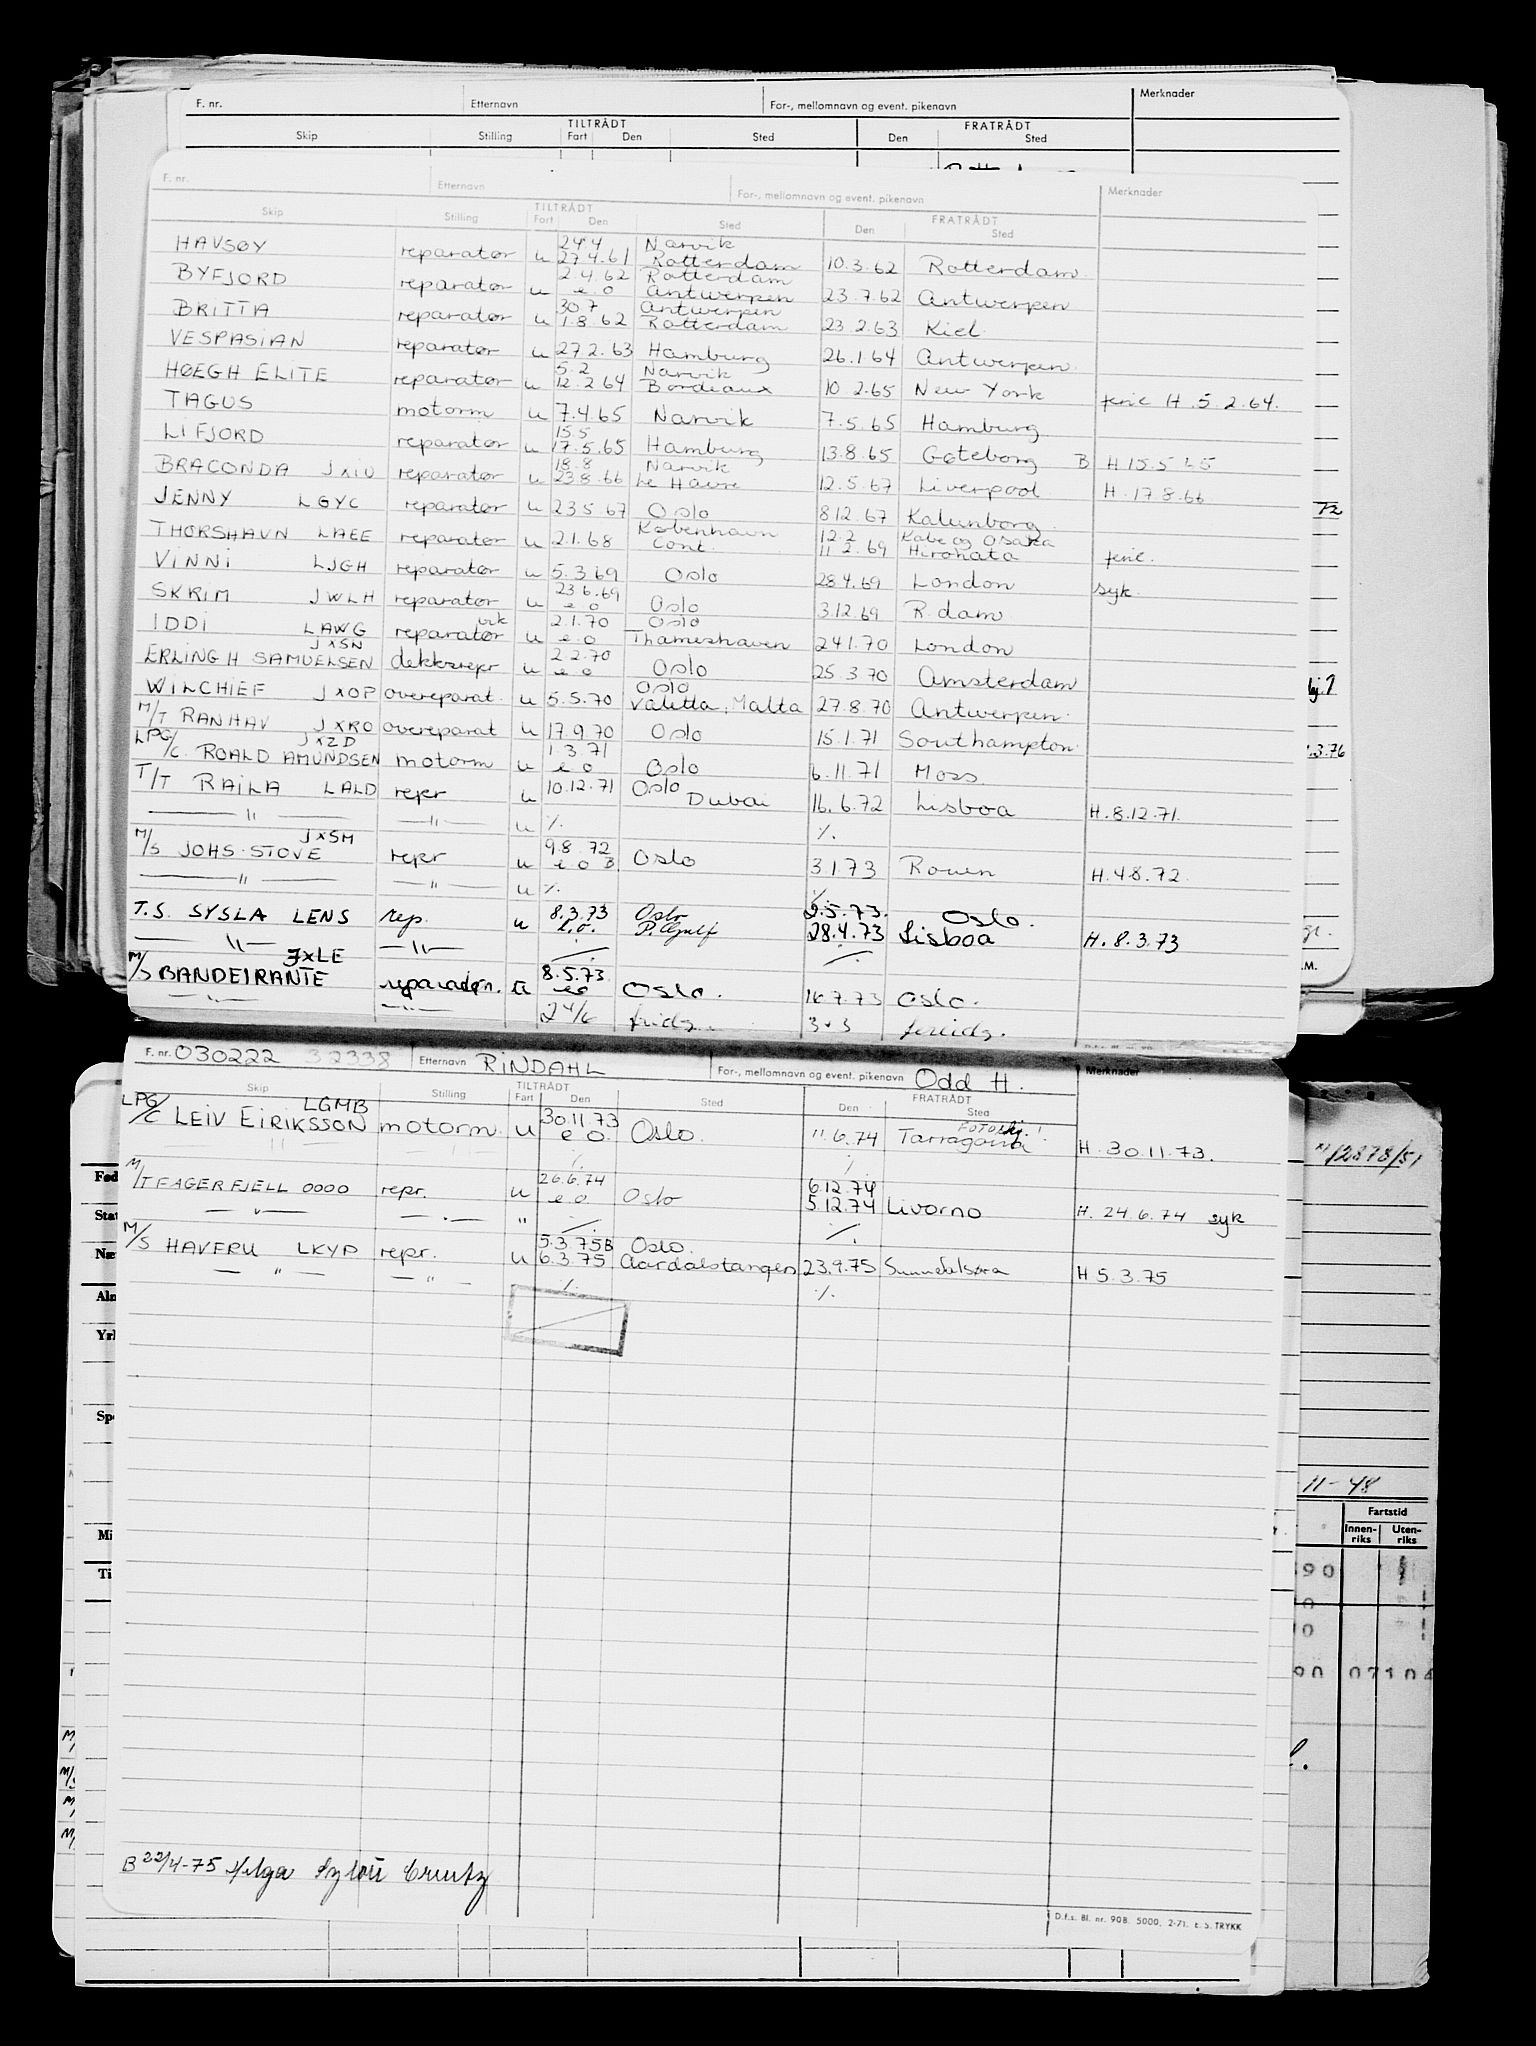 F. nr. Etternavn For-, mellomnavn og event. pikenavn Merknader
TILTRÅDT FRATRÅDT
Skip Stilling Fart Den Sted Den Sted
F. nr. Etternavn For-, mellomnavn og event. pikenavn Merknader
TILTRÅDT FRATRÅDT
Skip Stilling Fart Den Sted Den Sted
24.4 Narvik
HAVSØY reparatør u 27.4.61 Rotterdam 10.3.62 Rotterdam
2.4.62 Rotterdam
BYFJORD reparatør u e.o Antwerpen 23.7.62 Antwerpen
30.7 Antwerpen
BRITTA reparatør u 1.8.62 Rotterdam 23.2.63 Kiel
VESPASIAN reparatør u 27.2.63 Hamburg 26.1.64 Antwerpen
5.2 Narvik
HØEGH ELITE reparatør u 12.2.64 Bordeaux 10.2.65 New York ferie H.5.2.64.
TAGUS motorm u 7.4.65 Narvik 7.5.65 Hamburg
15.5
LIFJORD reparatør u 17.5.65 Hamburg 13.8.65 Gøteborg B H 15.5.65
18.8 Narvik
BRACONDA JXIU reparatør u 23.8.66 Le Havre 12.5.67 Liverpool H.17.8.66
JENNY LGYC reparatør u 23.5.67 Oslo 8.12.67 Kalunborg 72
København 12.2 Kobe og Osaka
THORSHAVN LAEE reparatør u 2.1.68 Cont. 11.2.69 Hirohata ferie.
VINNI LJGH reparatør u 5.3.69 Oslo 28.4.69 London syk
23.6.69
SKRIM JWLH reparatør u e o Oslo 3.12.69 R.dam
vik 2.1.70 Oslo
IDDI LAWG reparatør u e.o Thameshaven 24.1.70 London
JXSN 2.2.70
ERLING H SAMUELSEN dekksrepr u e o Oslo 25.3.70 Amsterdam
Oslo
WILCHIEF JXOP overeparat. u 5.5.70 Valetta, Malta 27.8.70 Antwerpen
M/T RANHAV JXRO overeparat u 17.9.70 Oslo 15.1.71 Southampton
JXZD 1.3.71
LPG/C. ROALD AMUNDSEN motorm u e o Oslo 6.11.71 Moss
T/T RAILA LALD repr u 10.12.71 Oslo Dubai 16.6.72 Lisboa H.8.12.71.
— " — — " — u ./. ./.
JXSM 9.8.72
M/S JOHS. STOVE repr u e o B Oslo 3.1.73 Rouen H.4.8.72.
— " — — " — u ./. ./.
8.3.73 Oslo 2.5.73. Oslo.
T.S. SYSLA LENS rep. u e.o. P.Gulf 28.4.73 Lisboa H.8.3.73
— " — — " — ./. ./.
JXLE 8.5.73
M/S BANDEIRANTE reparatør. u e o Oslo. 16.7.73 Oslo.
— " — — " — 24/6 fridg. 3+3 feriedg.
F. nr. 030222 32338 Etternavn RINDAHL For-, mellomnavn og event. pikenavn Odd H. Merknader
TILTRÅDT FRATRÅDT
Skip Stilling Fart Den Sted Den Sted
LGMB 30.11.73
LPG/C LEIV EIRIKSSON motorm. u e o. Oslo. 11.6.74 Tarragona H.30.11.73.
./. ./.
26.6.74 6.12.74
M/T FAGERFJELL 0000 repr. u e o Oslo 5.12.74 Livorno H. 24.6.74 syk
— " — — " — " ./. ./.
5.3.75B Oslo.
M/S HAVERU LKYP repr. u 6.3.75 Aardalstangen 23.9.75 Sunndalsøra H 5.3.75
— " — — " — ./. ./.
B 22/4-75 Helga
D.f.s. Bl. nr. 90B. 5000, 2-71. E. S. TRYKK
12878/51
11-48
Fartstid
Innen-riks Uten-riks
07104